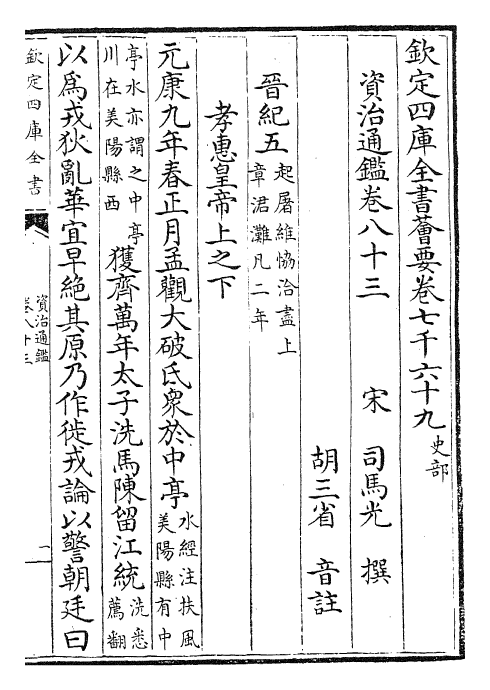 欽定四庫全書薈要卷七千六十九 史部
資治通鑑卷八十三
宋 司馬光 撰
胡三省 音註
晉紀五 起屠維協洽盡上
章涒灘凡二年
孝惠皇帝上之下
元康九年春正月孟觀大破氐眾於中亭 水經注扶風
美陽縣有中
亭水亦謂之中亭
川在美陽縣西
獲齊萬年太子洗馬陳留江統 洗悉
薦翻
以為戎狄亂華宜早絶其原乃作徙戎論以警朝廷曰
欽定四庫全書
資治通鑑
卷八十三
一